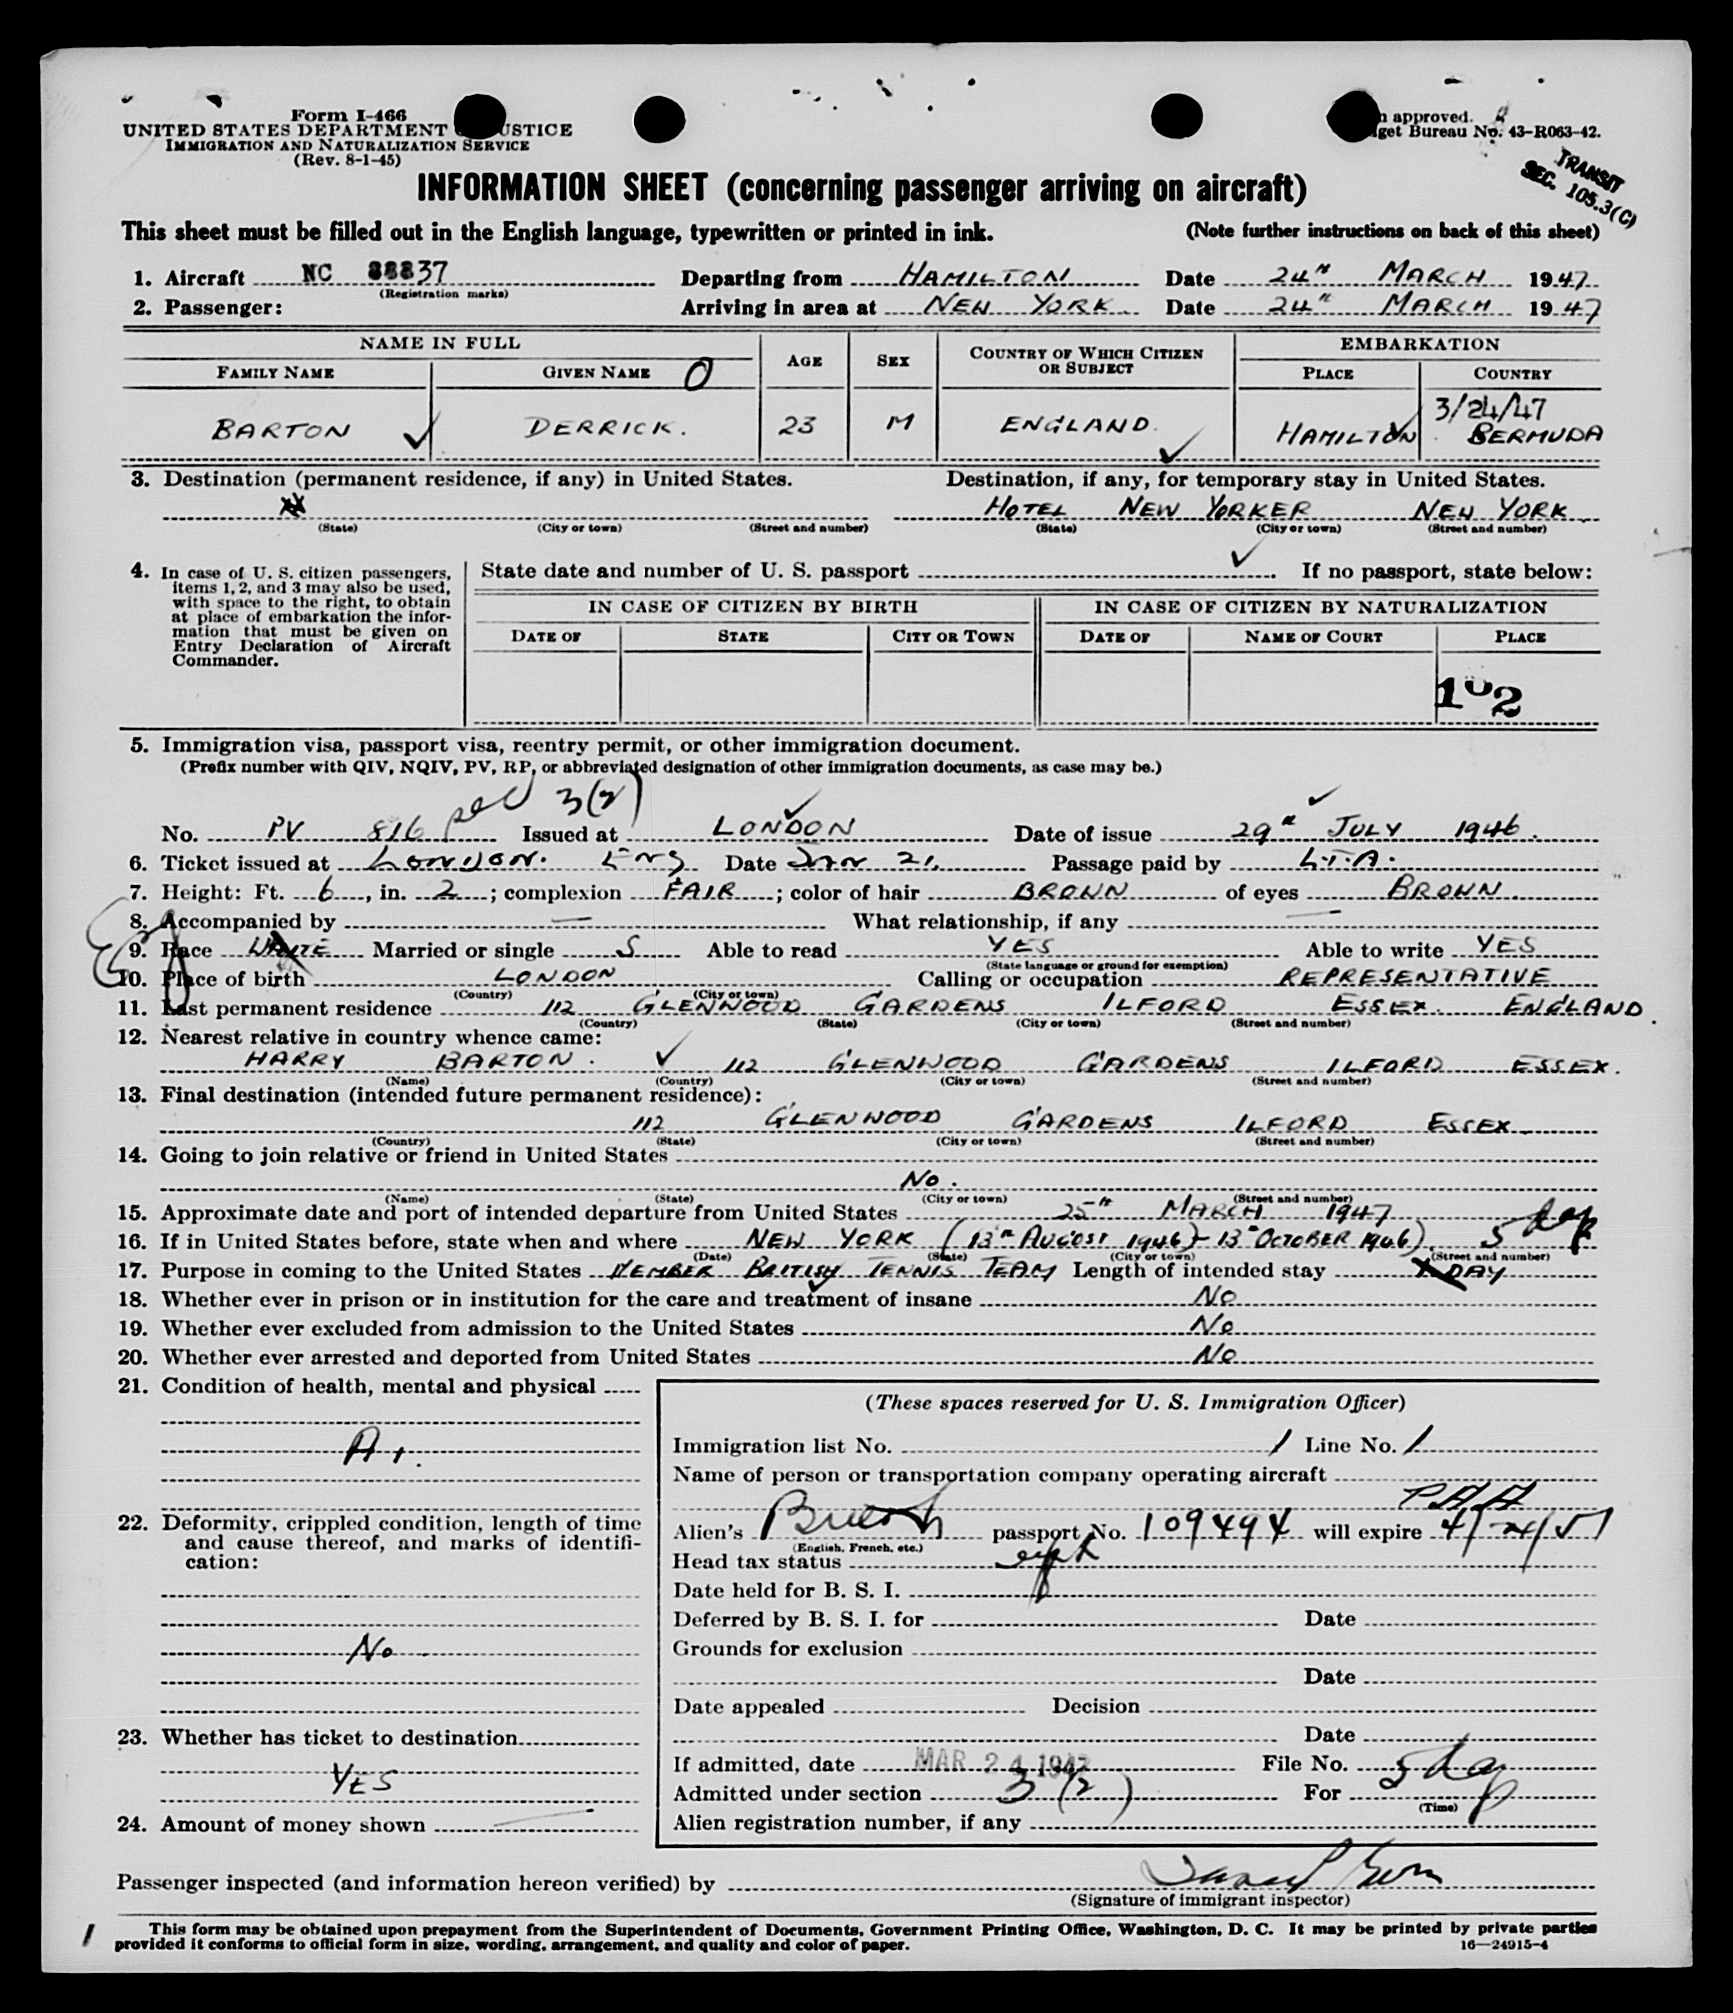 Form I-466
UNITED STATES DEPARTMENT USTICE
IMMIGRATION AND NATURALIZATION SERVICE
(Rev. 8-1-45)
approved.
get Bureau No. 43-R063-42.
TRANSIT
SEC. 105.3(C)
INFORMATION SHEET (concerning passenger arriving on aircraft)
This sheet must be filled out in the English language, typewritten or printed in ink. (Note further instructions on back of this sheet)
1. Aircraft NC 88837 Departing from HAMILTON Date 24TH MARCH 1947
(Registration marks)
2. Passenger: Arriving in area at NEW YORK Date 24TH MARCH 1947
NAME IN FULL AGE SEX COUNTRY OF WHICH CITIZEN OR SUBJECT EMBARKATION
FAMILY NAME GIVEN NAME O PLACE COUNTRY
3/24/47
BARTON DERRICK. 23 M ENGLAND. HAMILTON BERMUDA
3. Destination (permanent residence, if any) in United States. Destination, if any, for temporary stay in United States.
HOTEL NEW YORKER NEW YORK
(State) (City or town) (Street and number) (State) (City or town) (Street and number)
4. In case of U. S. citizen passengers, items 1, 2, and 3 may also be used, with space to the right, to obtain at place of embarkation the information that must be given on Entry Declaration of Aircraft Commander.
State date and number of U. S. passport . If no passport, state below:
IN CASE OF CITIZEN BY BIRTH IN CASE OF CITIZEN BY NATURALIZATION
DATE OF STATE CITY OR TOWN DATE OF NAME OF COURT PLACE
102
5. Immigration visa, passport visa, reentry permit, or other immigration document.
(Prefix number with QIV, NQIV, PV, RP, or abbreviated designation of other immigration documents, as case may be.)
3(2)
No. PV 816 Issued at LONDON Date of issue 29TH JULY 1946.
6. Ticket issued at LONDON. ENG Date JAN 21. Passage paid by L.T.A.
7. Height: Ft. 6, in. 2; complexion FAIR; color of hair BROWN of eyes BROWN.
8. Accompanied by — What relationship, if any —
9. Race WHITE Married or single S Able to read YES Able to write YES
(State language or ground for exemption)
10. Place of birth LONDON Calling or occupation REPRESENTATIVE
(Country) (City or town)
11. Last permanent residence 112 GLENWOOD GARDENS ILFORD ESSEX. ENGLAND.
(Country) (State) (City or town) (Street and number)
12. Nearest relative in country whence came:
HARRY BARTON. 112 GLENWOOD GARDENS ILFORD ESSEX.
(Name) (Country) (City or town) (Street and number)
13. Final destination (intended future permanent residence):
112 GLENWOOD GARDENS ILFORD ESSEX.
(Country) (State) (City or town) (Street and number)
14. Going to join relative or friend in United States
No.
(Name) (State) (City or town) (Street and number)
15. Approximate date and port of intended departure from United States 25TH MARCH 1947
16. If in United States before, state when and where NEW YORK (13TH AUGUST 1946) - 13TH OCTOBER 1946) 5 day
(Date) (State) (City or town) (Street and number)
17. Purpose in coming to the United States MEMBER BRITISH TENNIS TEAM Length of intended stay 1 DAY
18. Whether ever in prison or in institution for the care and treatment of insane No
19. Whether ever excluded from admission to the United States No
20. Whether ever arrested and deported from United States No
21. Condition of health, mental and physical
A1.
22. Deformity, crippled condition, length of time and cause thereof, and marks of identification:
No
23. Whether has ticket to destination
YES
24. Amount of money shown —
(These spaces reserved for U. S. Immigration Officer)
Immigration list No. 1 Line No. 1
Name of person or transportation company operating aircraft
PAA
Alien's British passport No. 109494 will expire
(English, French, etc.)
Head tax status
Date held for B. S. I.
Deferred by B. S. I. for Date
Grounds for exclusion
Date
Date appealed Decision
Date
If admitted, date MAR 24 1947 File No.
Admitted under section 3 (2) For 5 day
(Time)
Alien registration number, if any
Passenger inspected (and information hereon verified) by
(Signature of immigrant inspector)
1
This form may be obtained upon prepayment from the Superintendent of Documents, Government Printing Office, Washington, D. C. It may be printed by private parties
provided it conforms to official form in size, wording, arrangement, and quality and color of paper. 16—24915-4